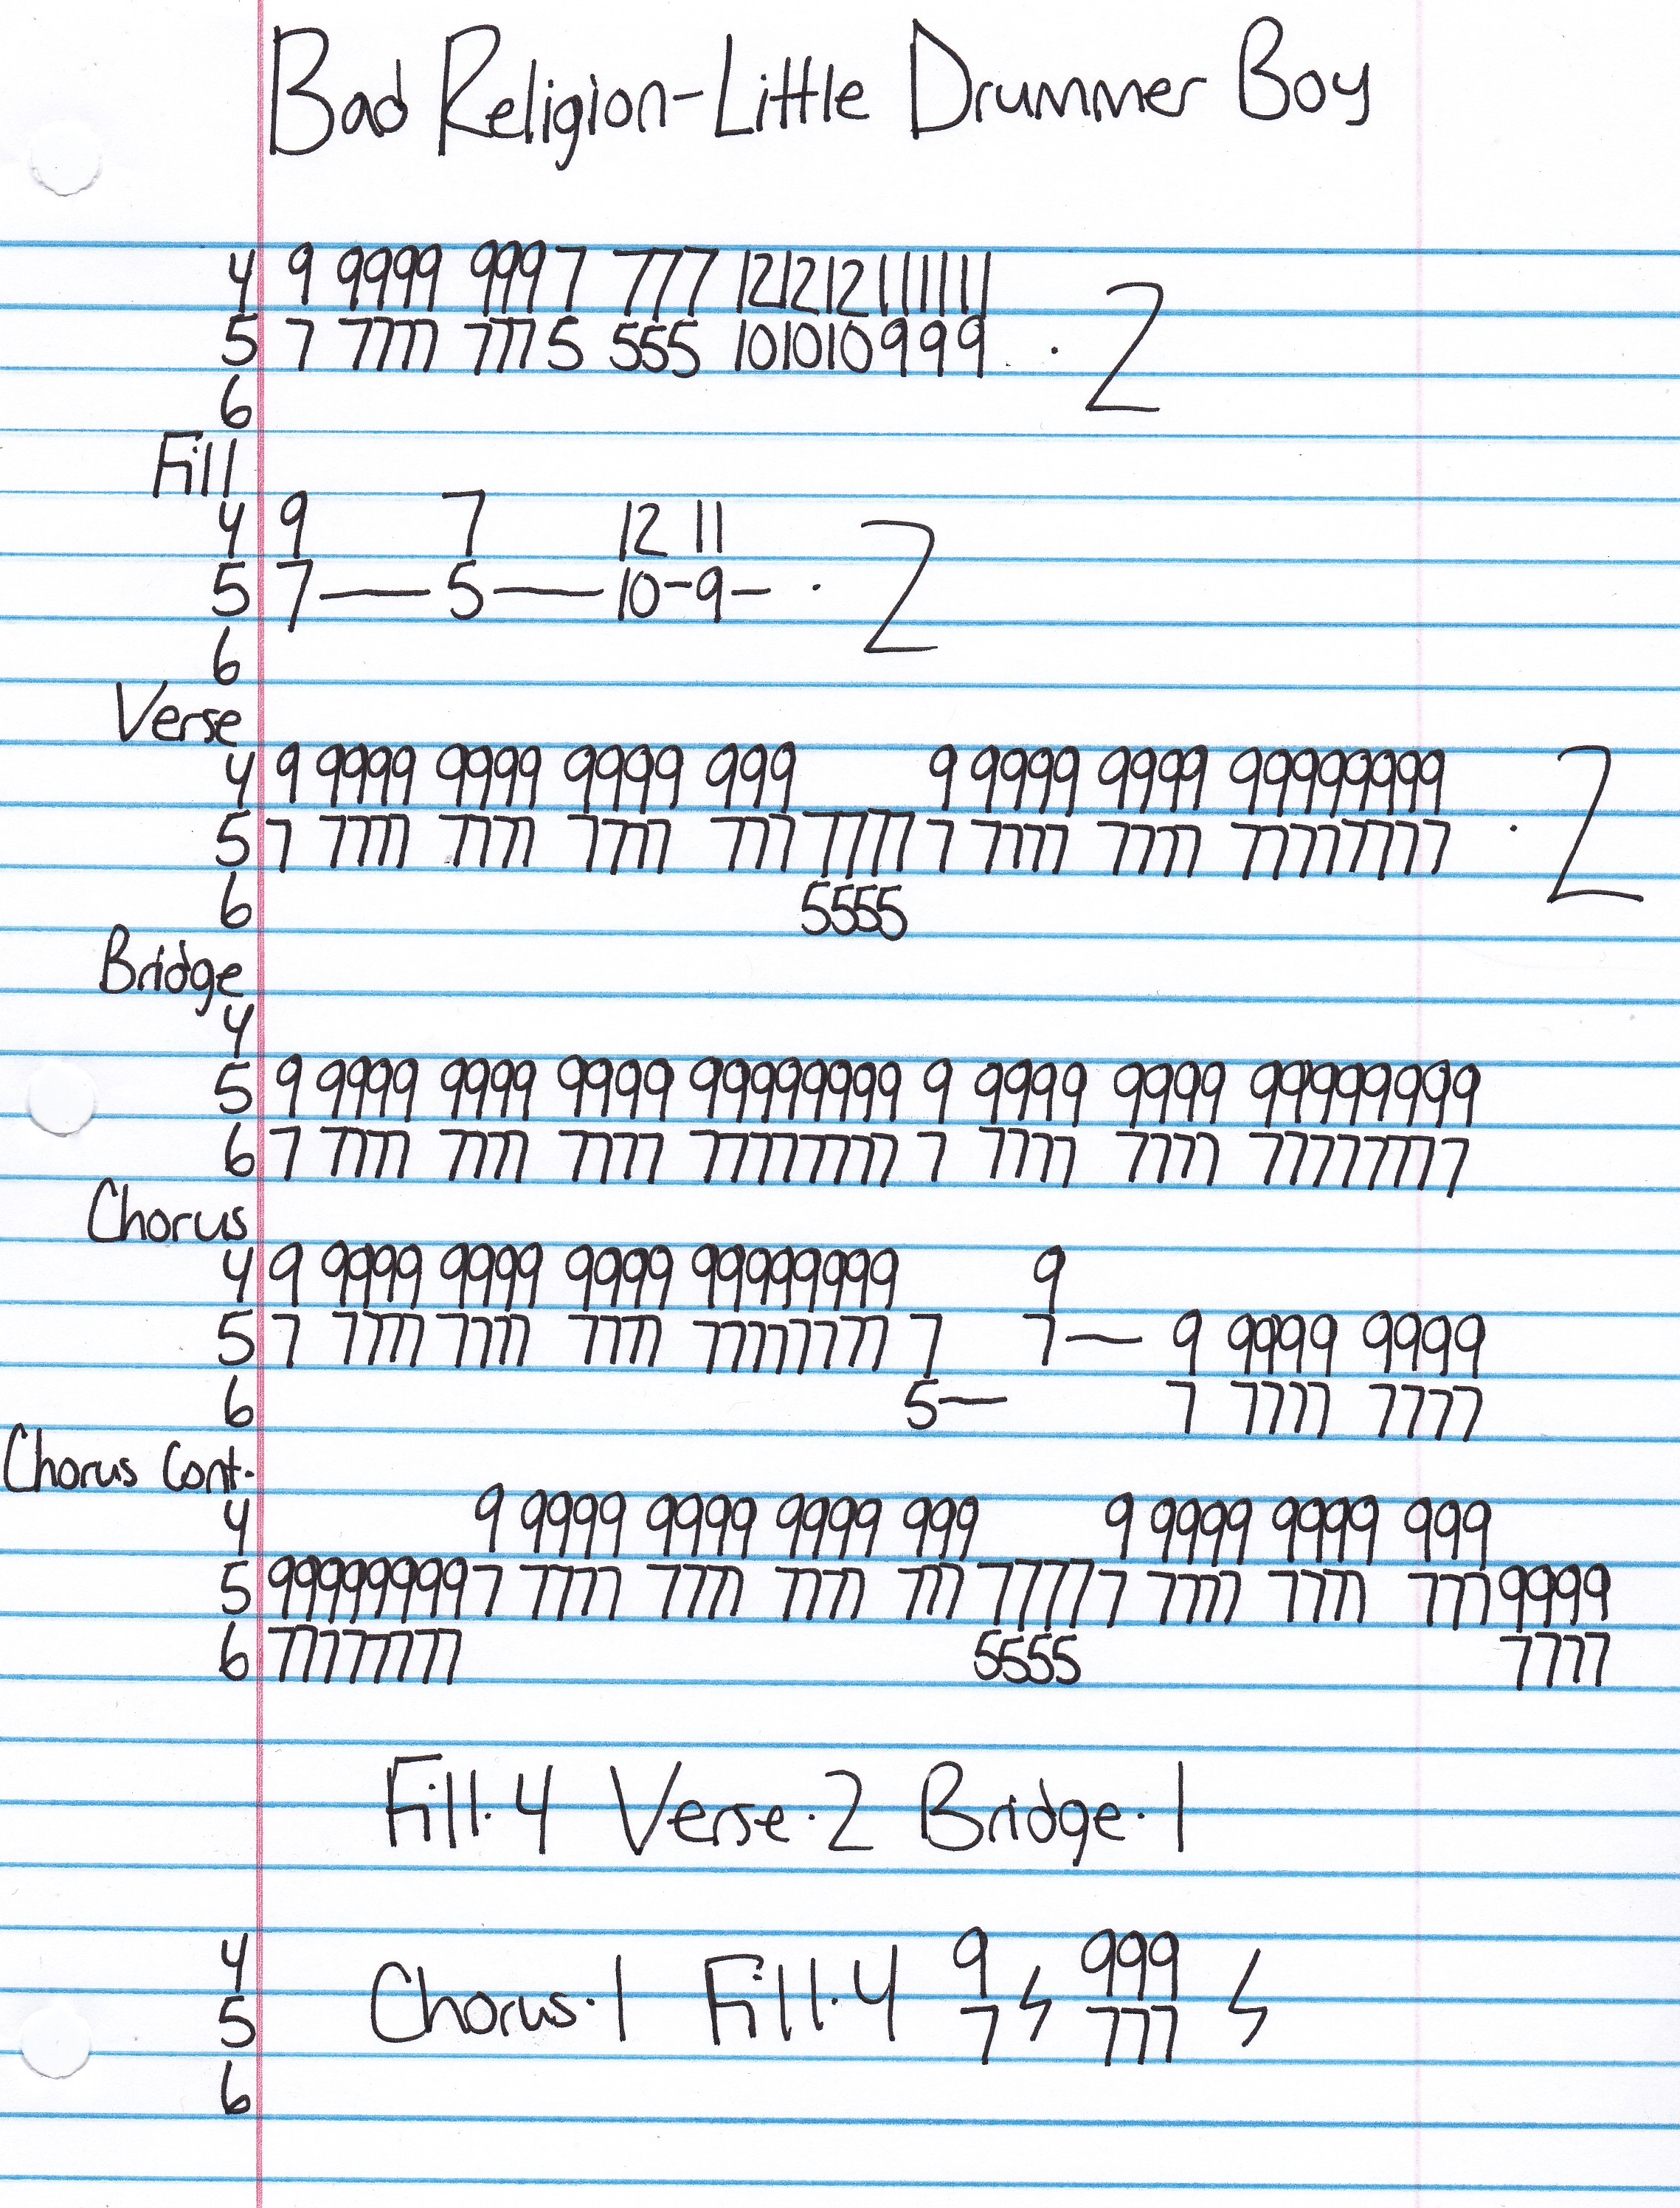 Bad Religion-Little Drummer Boy
4 9 9999 9997 777 121212111111
5 7 7777 7775 555 101010999 · 2
6
Fill
4 9 7 12 11
5 7—5—10-9- · 2
6
Verse
4 9 9999 9999 9999 999 9 9999 9999 99999999
5 7 7777 7777 7777 777 7777 7 7777 7777 77777777 · 2
6 5555
Bridge
4
5 9 9999 9999 9999 99999999 9 9999 9999 99999999
6 7 7777 7777 7777 77777777 7 7777 7777 77777777
Chorus
4 9 9999 9999 9999 99999999 9
5 7 7777 7777 7777 77777777 7 7— 9 9999 9999
6 5— 7 7777 7777
Chorus Cont.
4 9 9999 9999 9999 999 9 9999 9999 999
5 99999999 7 7777 7777 7777 777 7777 7 7777 7777 777 9999
6 77777777 5555 7777
Fill·4 Verse·2 Bridge·1
4 9 999
5 Chorus·1 Fill·4 7 777
6